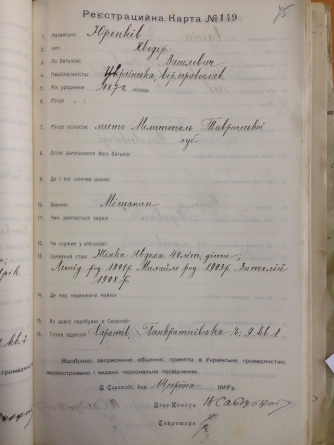 45
Реєстраційна Карта № 119
1. Назвисько: Юренків
2. Імя: Хведір
3. По батькові: Вашлевич
4. Національність: Українська, вір. православ.
5. Рік уродження: 187 місяць:
6. Місце „
7. Місце осілости: місто Мелитопіль Таврической
губ.
8. Філія замешкання його батьків:
9. Де і які скінчив школи:
10. Звання: Мещанин
11. Чим займається зараз
12. Чи служив у військові:
13. Сімейний стан Жінка 40 літ, діти:
Леонід род. 1901 р. Михайло род. 1903 р. Виталій
1908 р.
14. Де має недвижиме майно:
15. Як довго перебуває в Саратові:
16. Точна адресса: Саратів, Панкратіївська ч. 9 кв. 1
Відобрано заприсяжне обіцяння, принято в Українське громадянство,
зареєстровано і видано персональне посвідчення.
В Саратові, дня 14 серпня 1918 р.
Віце-Консул
Секретарь